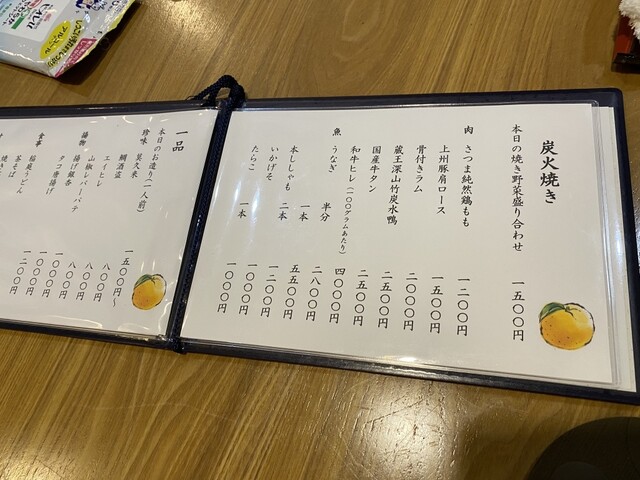 炭火焼き
本日の焼き野菜盛り合わせ 一五〇〇円
肉 さつま純然鶏もも 一二〇〇円
上州豚肩ロース 一五〇〇円
骨付きラム 二〇〇〇円
蔵王深山竹炭水鴨 二五〇〇円
国産牛タン 二五〇〇円
和牛ヒレ(一〇〇グラムあたり) 四〇〇〇円
魚 うなぎ 半分 二八〇〇円
一本 五五〇〇円
本ししゃも 二本 一二〇〇円
いかげそ 一〇〇〇円
たらこ 一本 一〇〇〇円
一品
本日のお造り(一人前) 一五〇〇円〜
珍味 莫久来 八〇〇円
鯛酒盗 八〇〇円
エイヒレ 八〇〇円
山椒レバーパテ 一〇〇〇円
揚物 揚げ銀杏 一〇〇〇円
タコ唐揚げ 一〇〇〇円
食事 稲庭うどん 一二〇〇円
茶そば